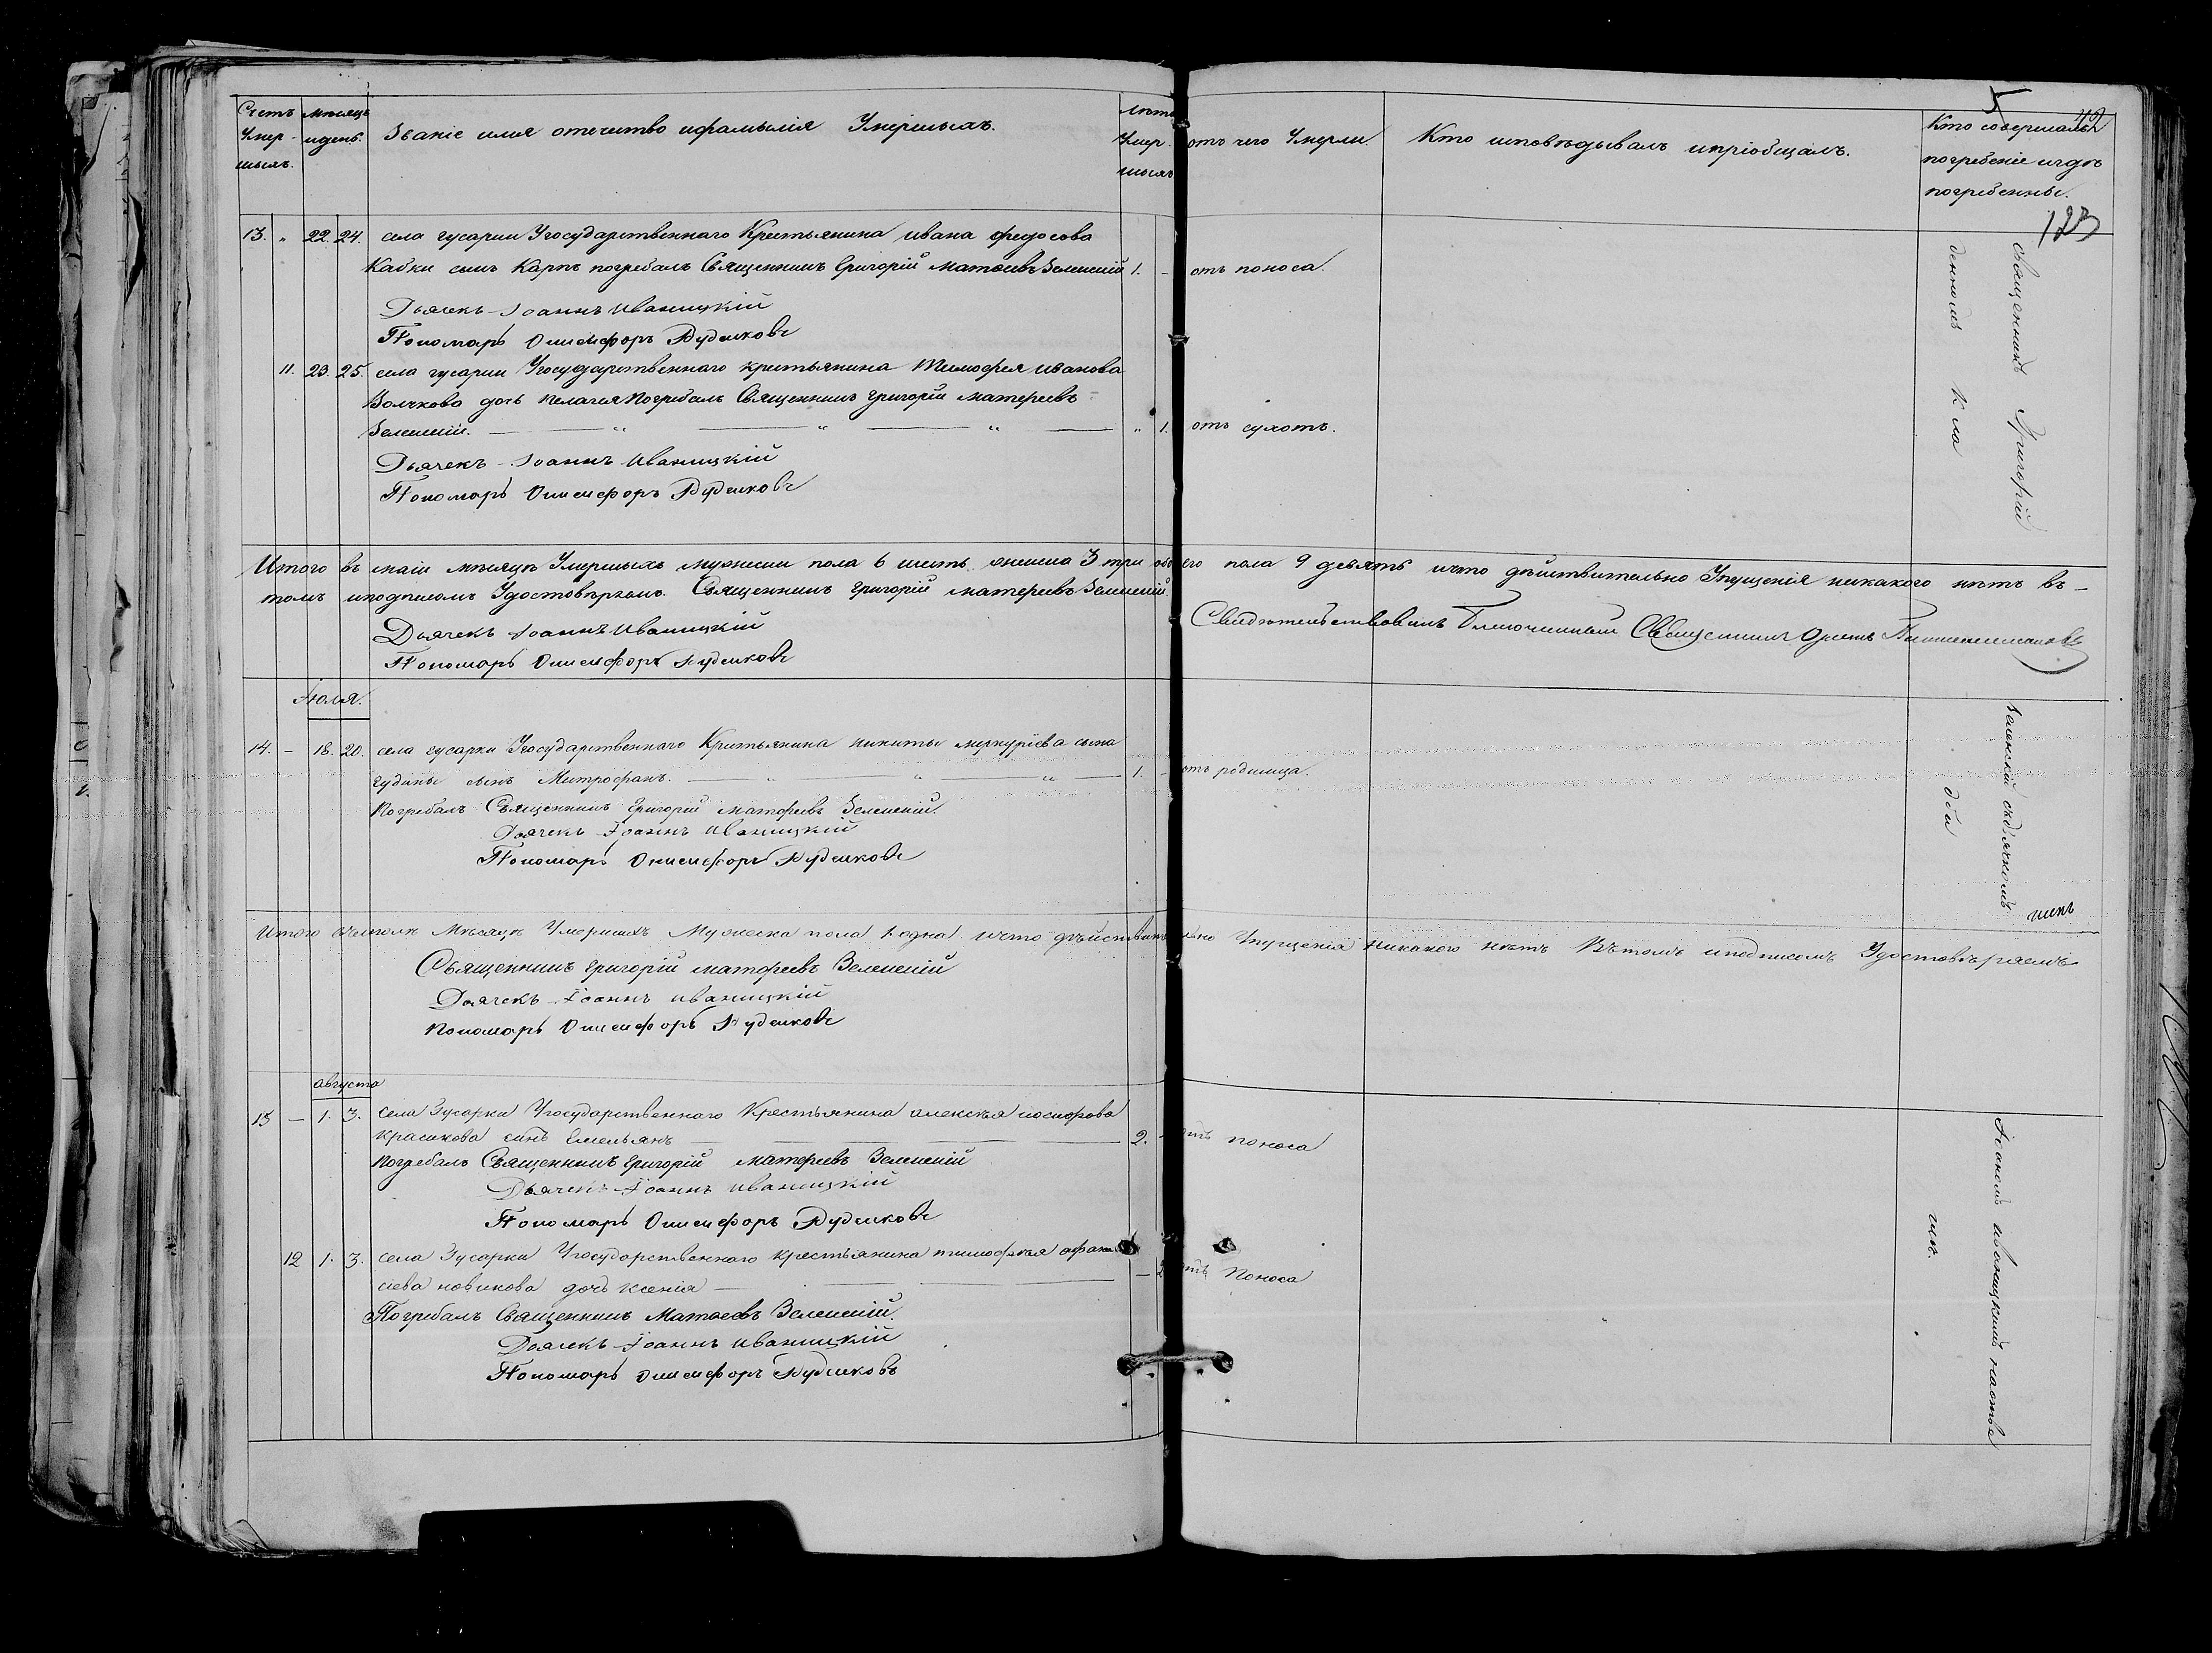 Счетъ Умер-шыхъ. мѣсяцъ идень. Званіе имя отечество ифамылія Умершыхъ. лѣта Умер-шыхъ отъ чего Умерли. Кто исповѣдывалъ ипріобщалъ. Кто совершалъ погребеніе игдѣ погребенны.
49
123
13. „ 22. 24. села гусарки Угосударственнаго Крестьянина ивана федосова
Кабки сынъ Карпъ погребалъ Священникъ Григорій матвеевъ Зеленскій 1. - отъ поноса.
Дьячекъ Іоаннъ иваницкій
Пономаръ Онисифоръ Рудиковъ
11. 23. 25. села гусарки Угосударственнаго крестьянина Тимофея иванова
Волчкова дочъ пелагея Погребалъ Священникъ Григорій матфеевъ
Зеленскій. „ 1. отъ сухотъ.
Дьячекъ Іоаннъ Иваницкій
Пономаръ Онисифоръ Рудиковъ
Итого въ маіи мѣсяцѣ Умершыхъ мужески пола 6 шесть женска 3 три обоего пола 9 девять ичто дѣйствительно Упущенія никакого нѣтъ въ-
томъ иподписомъ Удостовѣряемъ. Священникъ Григорій матфеевъ Зеленскій.
Дьячекъ Іоаннъ Иваницкій
Пономаръ Онисифоръ Рудиковъ
Свидѣтельствовалъ Благочинный Священникъ
Іюля.
14. - 18. 20. села гусарки Угосударственнаго Крестьянина никиты меркуріева сына
гудины сынъ Митрофанъ. 1. - отъ родимца.
Погребалъ Священникъ Григорій матфеевъ Зеленскій.
Дьячекъ Іоаннъ Иваницкій
Пономаръ Онисифоръ Рудиковъ
Итого Мѣсяцѣ Умершихъ Мужеска пола 1 одна ичто дѣйствительно Упущенія никакого нѣтъ Вътомъ иподписомъ Удостовѣряемъ
Священникъ Григорій матфеевъ Зеленскій
Дьячекъ Іоаннъ иваницкій
Пономаръ Онисифоръ Рудиковъ
августа
15 - 1. 3. Села Гусарки Угосударственнаго Крестьянина алексѣя иосифова
красикова синъ Емельянъ 2. - отъ поноса
Погребалъ Священникъ Григорій матфеевъ Зеленскій
Дьячекъ Іоаннъ иваницкій
Пономаръ Онисифоръ Рудиковъ
12 1. 3. села Гусарки Угосударственного крестьянина тимофѣя афана
сіева новикова дочь Ксенія - 2 отъ Поноса
Погребалъ Священникъ Матвеевъ Зеленскій.
Дьячекъ Іоаннъ иваницкій
Пономаръ Онисифоръ Рудиковъ
священникъ Григорій